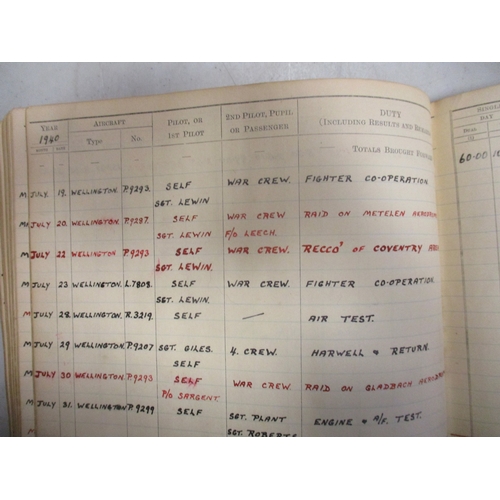 YEAR AIRCRAFT PILOT, OR 2ND PILOT, PUPIL DUTY
1940 Type No. 1ST PILOT OR PASSENGER (INCLUDING RESULTS AND
DAY
TOTALS BROUGHT
60·00
M JULY. 19. WELLINGTON. P.9293. SELF WAR CREW. FIGHTER CO-OPERATION
SGT. LEWIN
M JULY 20. WELLINGTON. P.9297. SELF WAR CREW RAID ON METELEN
SGT. LEWIN F/O LEECH.
M JULY 22 WELLINGTON P.9293 SELF WAR CREW. RECCO' OF COVENTRY
SGT. LEWIN.
M JULY 23 WELLINGTON. L.7808. SELF WAR CREW. FIGHTER CO-OPERATION.
SGT. LEWIN.
M JULY 28. WELLINGTON. R.3219. SELF — AIR TEST.
M JULY 29 WELLINGTON. P.9207 SGT. GILES. 4. CREW. HARWELL & RETURN.
SELF
M JULY 30 WELLINGTON. P.9293 SELF WAR CREW. RAID ON GLADBACH
P/O SARGENT.
M JULY 31. WELLINGTON P.9299 SELF SGT. PLANT ENGINE & A/F. TEST.
SGT. ROBERTS